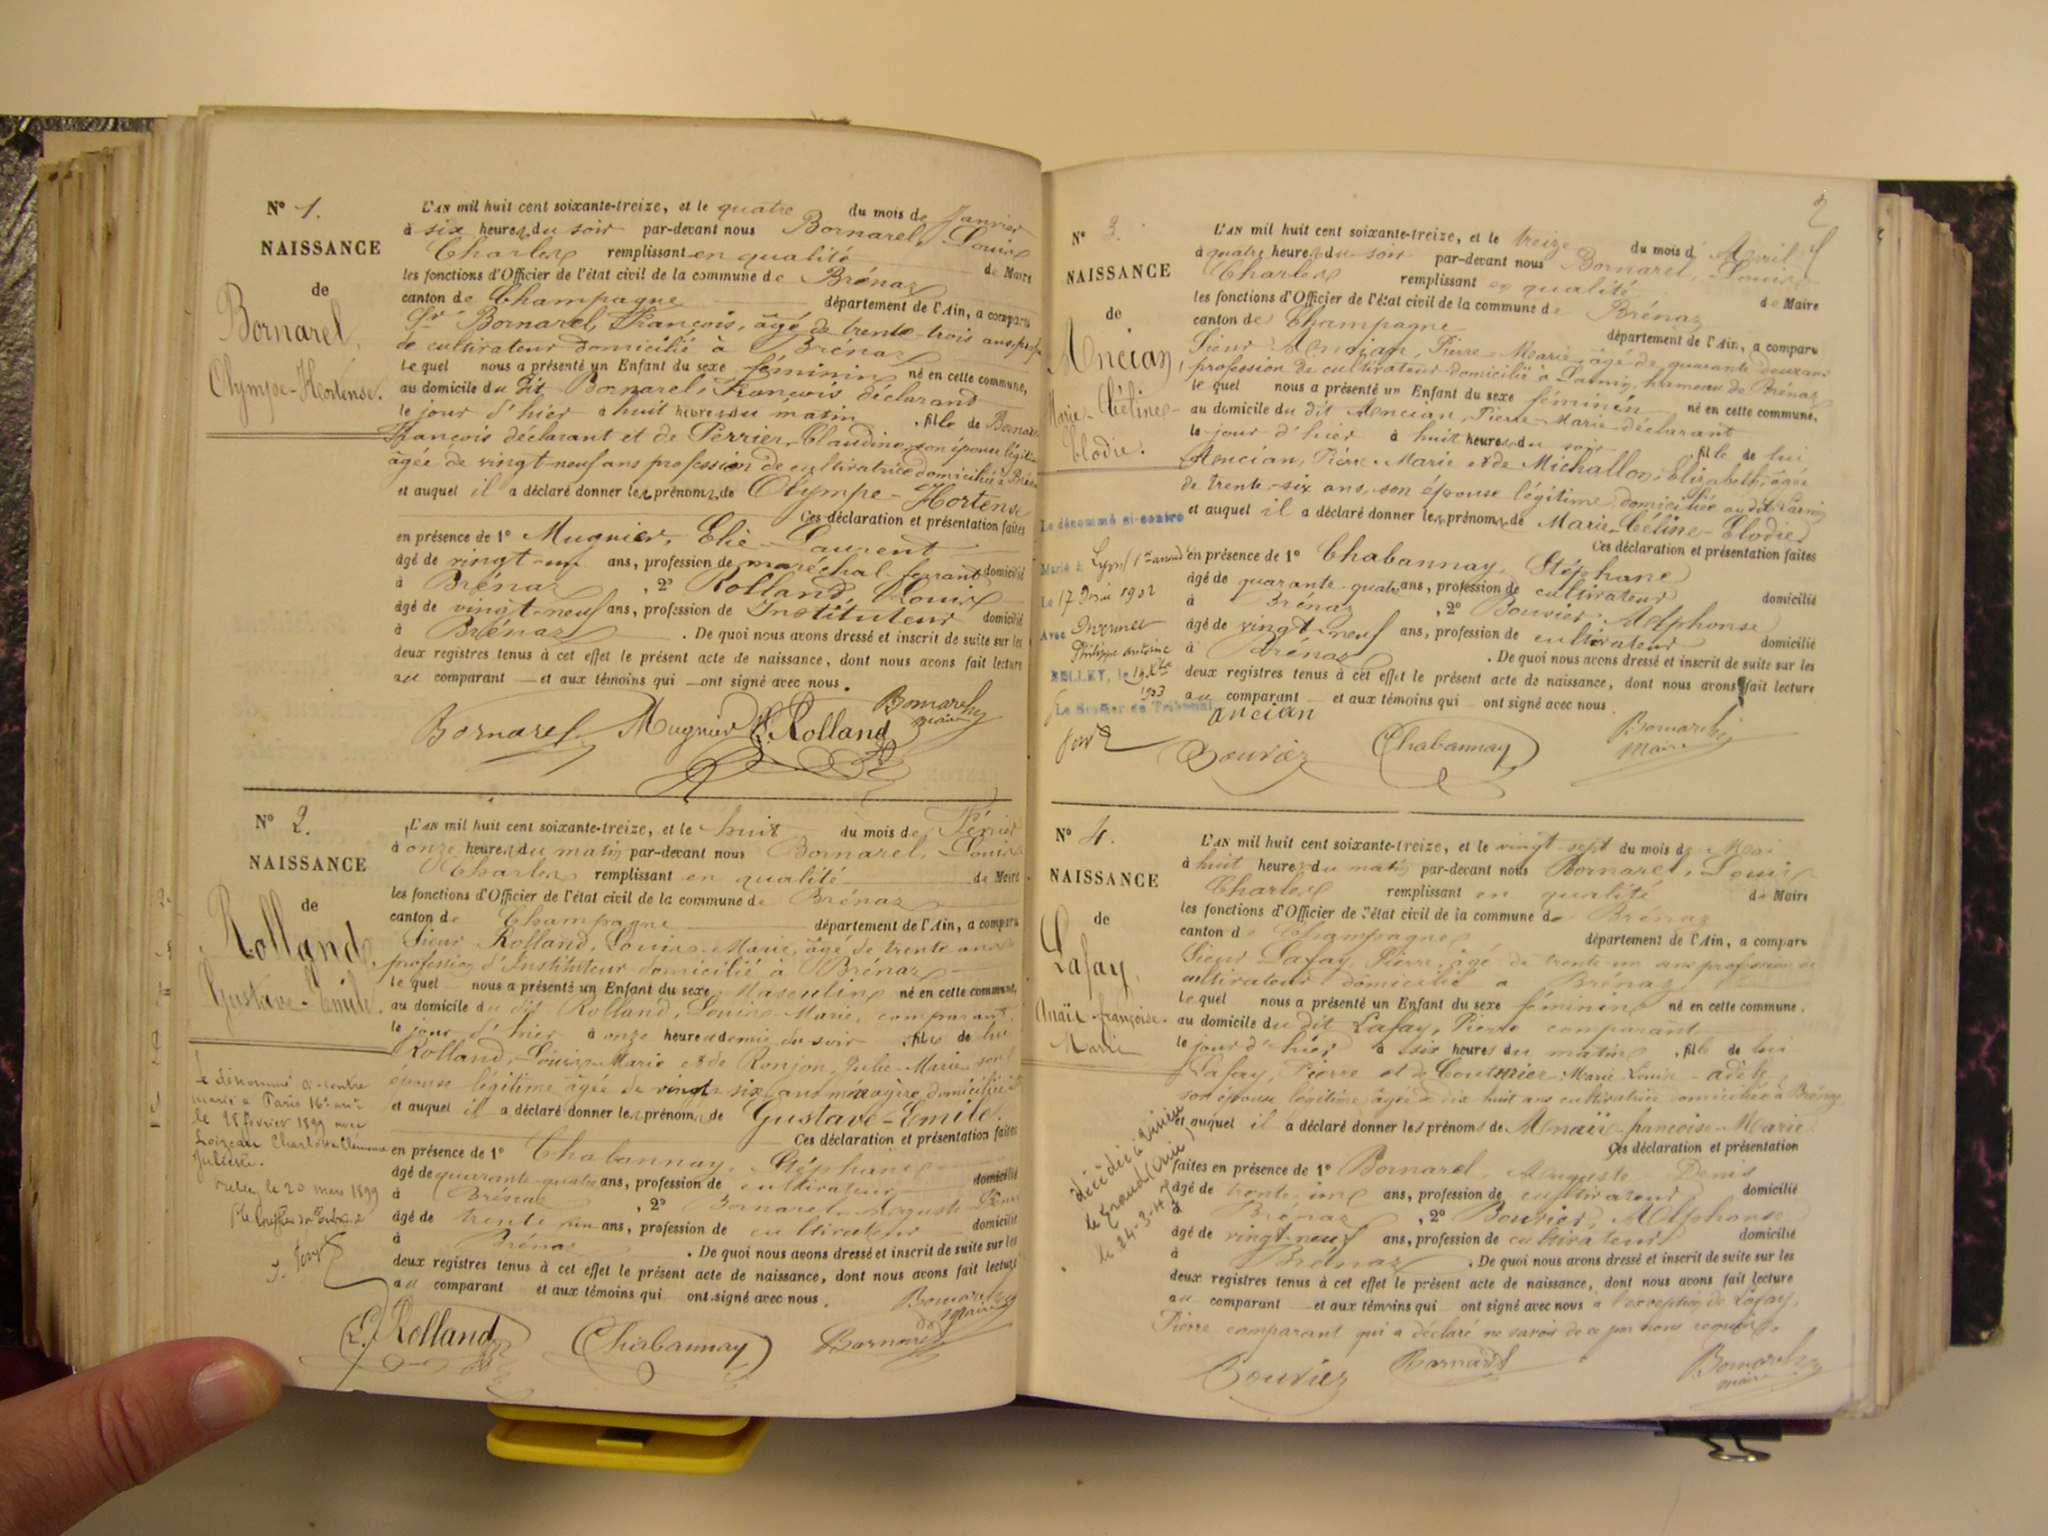 N° 1.
NAISSANCE
de
Bornarel,
Olympe-Hortense.
L'AN mil huit cent soixante-treize, et le quatre du mois de Janvier
à six heures du soir par-devant nous Bornarel, Louis
Charles remplissant en qualité de Maire
les fonctions d'Officier de l'état civil de la commune de Brénaz
canton de Champagne département de l'Ain, a comparu
Sr Bornarel, François, âgé de trente-trois ans, profes
de cultivateur domicilié à Brénaz
le quel nous a présenté un Enfant du sexe féminin né en cette commune,
au domicile du dit Bornarel, François déclarant
le jour d'hier à huit heures du matin, fille de Bornarel
François déclarant et de Perrier, Claudine, son épouse légitime
âgée de vingt-neuf ans profession de cultivatrice domiciliée à Brénaz
et auquel il a déclaré donner les prénoms de Olympe-Hortense
Ces déclaration et présentation faites
en présence de 1° Mugnier, Elie Laurent
âgé de vingt-un ans, profession de maréchal-ferrant domicilié
à Brénaz, 2° Rolland, Louis
âgé de vingt-neuf ans, profession de Instituteur domicilié
à Brénaz. De quoi nous avons dressé et inscrit de suite sur les
deux registres tenus à cet effet le présent acte de naissance, dont nous avons fait lecture
au comparant et aux témoins qui ont signé avec nous.
Bornarel Mugnier L. Rolland Bornarel
maire
N° 2.
NAISSANCE
de
Rolland,
Gustave-Emile.
Le dénommé ci-contre
marié à Paris 16e arrt
le 28 février 1899 avec
Loizeau Charlotte Clémence
Juliette.
Belley le 20 mars 1899
L'AN mil huit cent soixante-treize, et le huit du mois de Février
à onze heures du matin par-devant nous Bornarel, Louis
Charles remplissant en qualité de Maire
les fonctions d'Officier de l'état civil de la commune de Brénaz
canton de Champagne département de l'Ain, a comparu
Sieur Rolland, Louis-Marie, âgé de trente ans
profession d'Instituteur domicilié à Brénaz
le quel nous a présenté un Enfant du sexe Masculin né en cette commune,
au domicile du dit Rolland, Louis-Marie, comparant
le jour d'hier à onze heures et demie du soir, fils de lui
Rolland, Louis-Marie et de Ronjon, Julie-Marie son
épouse légitime âgée de vingt six ans ménagère domiciliée
et auquel il a déclaré donner les prénoms de Gustave-Emile.
Ces déclaration et présentation faites
en présence de 1° Chabannay, Stéphane
âgé de quarante-quatre ans, profession de cultivateur domicilié
à Brénaz, 2° Bornarel Auguste Denis
âgé de trente un ans, profession de cultivateur domicilié
à Brénaz. De quoi nous avons dressé et inscrit de suite sur les
deux registres tenus à cet effet le présent acte de naissance, dont nous avons fait lecture
au comparant et aux témoins qui ont signé avec nous.
L. Rolland Chabannay Bornarel Bornarel
maire
2
N° 3.
NAISSANCE
de
Ancian,
Marie-Céline-
Elodie.
Le dénommé ci-contre
Marié à Lyon 1er arrondt
Le 17 1902
Avec
Philippe Antoine
BELLEY, le
1903
Le Greffier du Tribunal
L'AN mil huit cent soixante-treize, et le treize du mois d'Avril
à quatre heures du soir par-devant nous Bornarel, Louis
Charles remplissant en qualité de Maire
les fonctions d'Officier de l'état civil de la commune de Brénaz
canton de Champagne département de l'Ain, a comparu
Sieur Ancian, Pierre-Marie âgé de quarante deux ans
profession de cultivateur domicilié à hameau de Brénaz
le quel nous a présenté un Enfant du sexe féminin né en cette commune,
au domicile du dit Ancian, Pierre-Marie déclarant
le jour d'hier à huit heures du soir fille de lui
Ancian, Pierre-Marie et de Michallon, Elizabeth, âgée
de trente-six ans, son épouse légitime, domiciliée au dit
et auquel il a déclaré donner les prénoms de Marie-Céline-Elodie
Ces déclaration et présentation faites
en présence de 1° Chabannay, Stéphane
âgé de quarante-quatre ans, profession de cultivateur domicilié
à Brénaz, 2° Bouvier, Alphonse
âgé de vingt-neuf ans, profession de cultivateur domicilié
à Brénaz. De quoi nous avons dressé et inscrit de suite sur les
deux registres tenus à cet effet le présent acte de naissance, dont nous avons fait lecture
au comparant et aux témoins qui ont signé avec nous.
Ancian
Bouvier Chabannay Bornarel
Maire
N° 4.
NAISSANCE
de
Lafay,
Anaïs-françoise-
Marie
Décédée à Virieu
le Grand (Ain)
le 24-3-
L'AN mil huit cent soixante-treize, et le vingt-sept du mois de Mai
à huit heures du matin par-devant nous Bornarel, Louis
Charles remplissant en qualité de Maire
les fonctions d'Officier de l'état civil de la commune de Brénaz
canton de Champagne département de l'Ain, a comparu
Sieur Lafay, Pierre, âgé de trente-un ans profession de
cultivateur domicilié à Brénaz
le quel nous a présenté un Enfant du sexe féminin né en cette commune.
au domicile du dit Lafay, Pierre comparant
le jour d'hier à six heures du matin, fille de lui
Lafay, Pierre et de Couturier Marie Louise-adèle
son épouse légitime âgée de dix huit ans cultivatrice domiciliée à Brénaz
et auquel il a déclaré donner les prénoms de Anaïs-francoise-Marie
Ces déclaration et présentation
faites en présence de 1° Bornarel Auguste Denis
âgé de trente-un ans, profession de cultivateur domicilié
à Brénaz, 2° Bouvier, Alphonse
âgé de vingt-neuf ans, profession de cultivateur domicilié
à Brénaz. De quoi nous avons dressé et inscrit de suite sur les
deux registres tenus à cet effet le présent acte de naissance, dont nous avons fait lecture
au comparant et aux témoins qui ont signé avec nous à l'exception de Lafay,
Pierre comparant qui a déclaré ne savoir de ce par nous requis.
Bouvier Bornarel Bornarel
maire